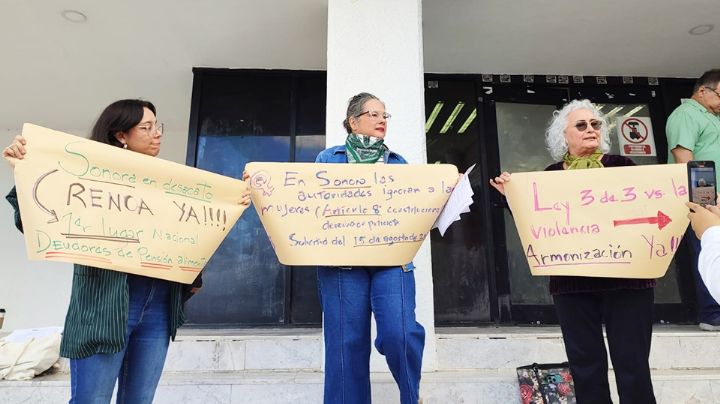 Sonora en desacato
RENCA YA!!!!
1er Lugar Nacional
Deudores de Pensión
En Sonora las
autoridades ignoran a las
mujeres (Artículo 8 constitucional
derecho
Solicitud del 15 de agosto de
Ley 3 de 3 vs la
Violencia
Armonización Ya!!!